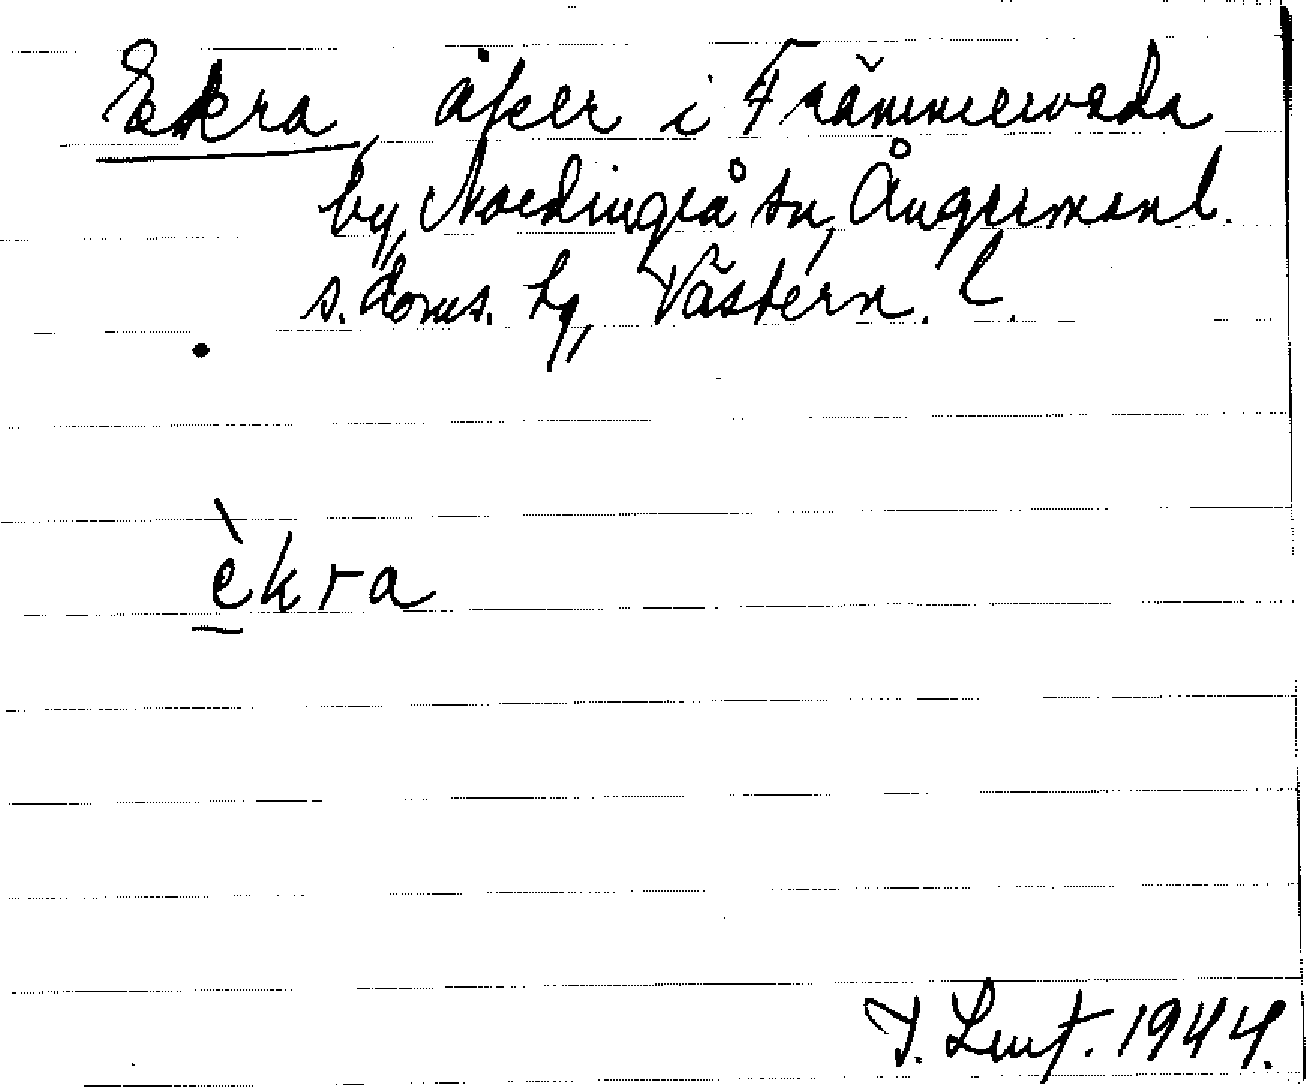 Ekra, åker i Främmervada
by, Nordingrå sn, Ångermanl.
s. doms. hg, Västern. l.
èkra
1944.